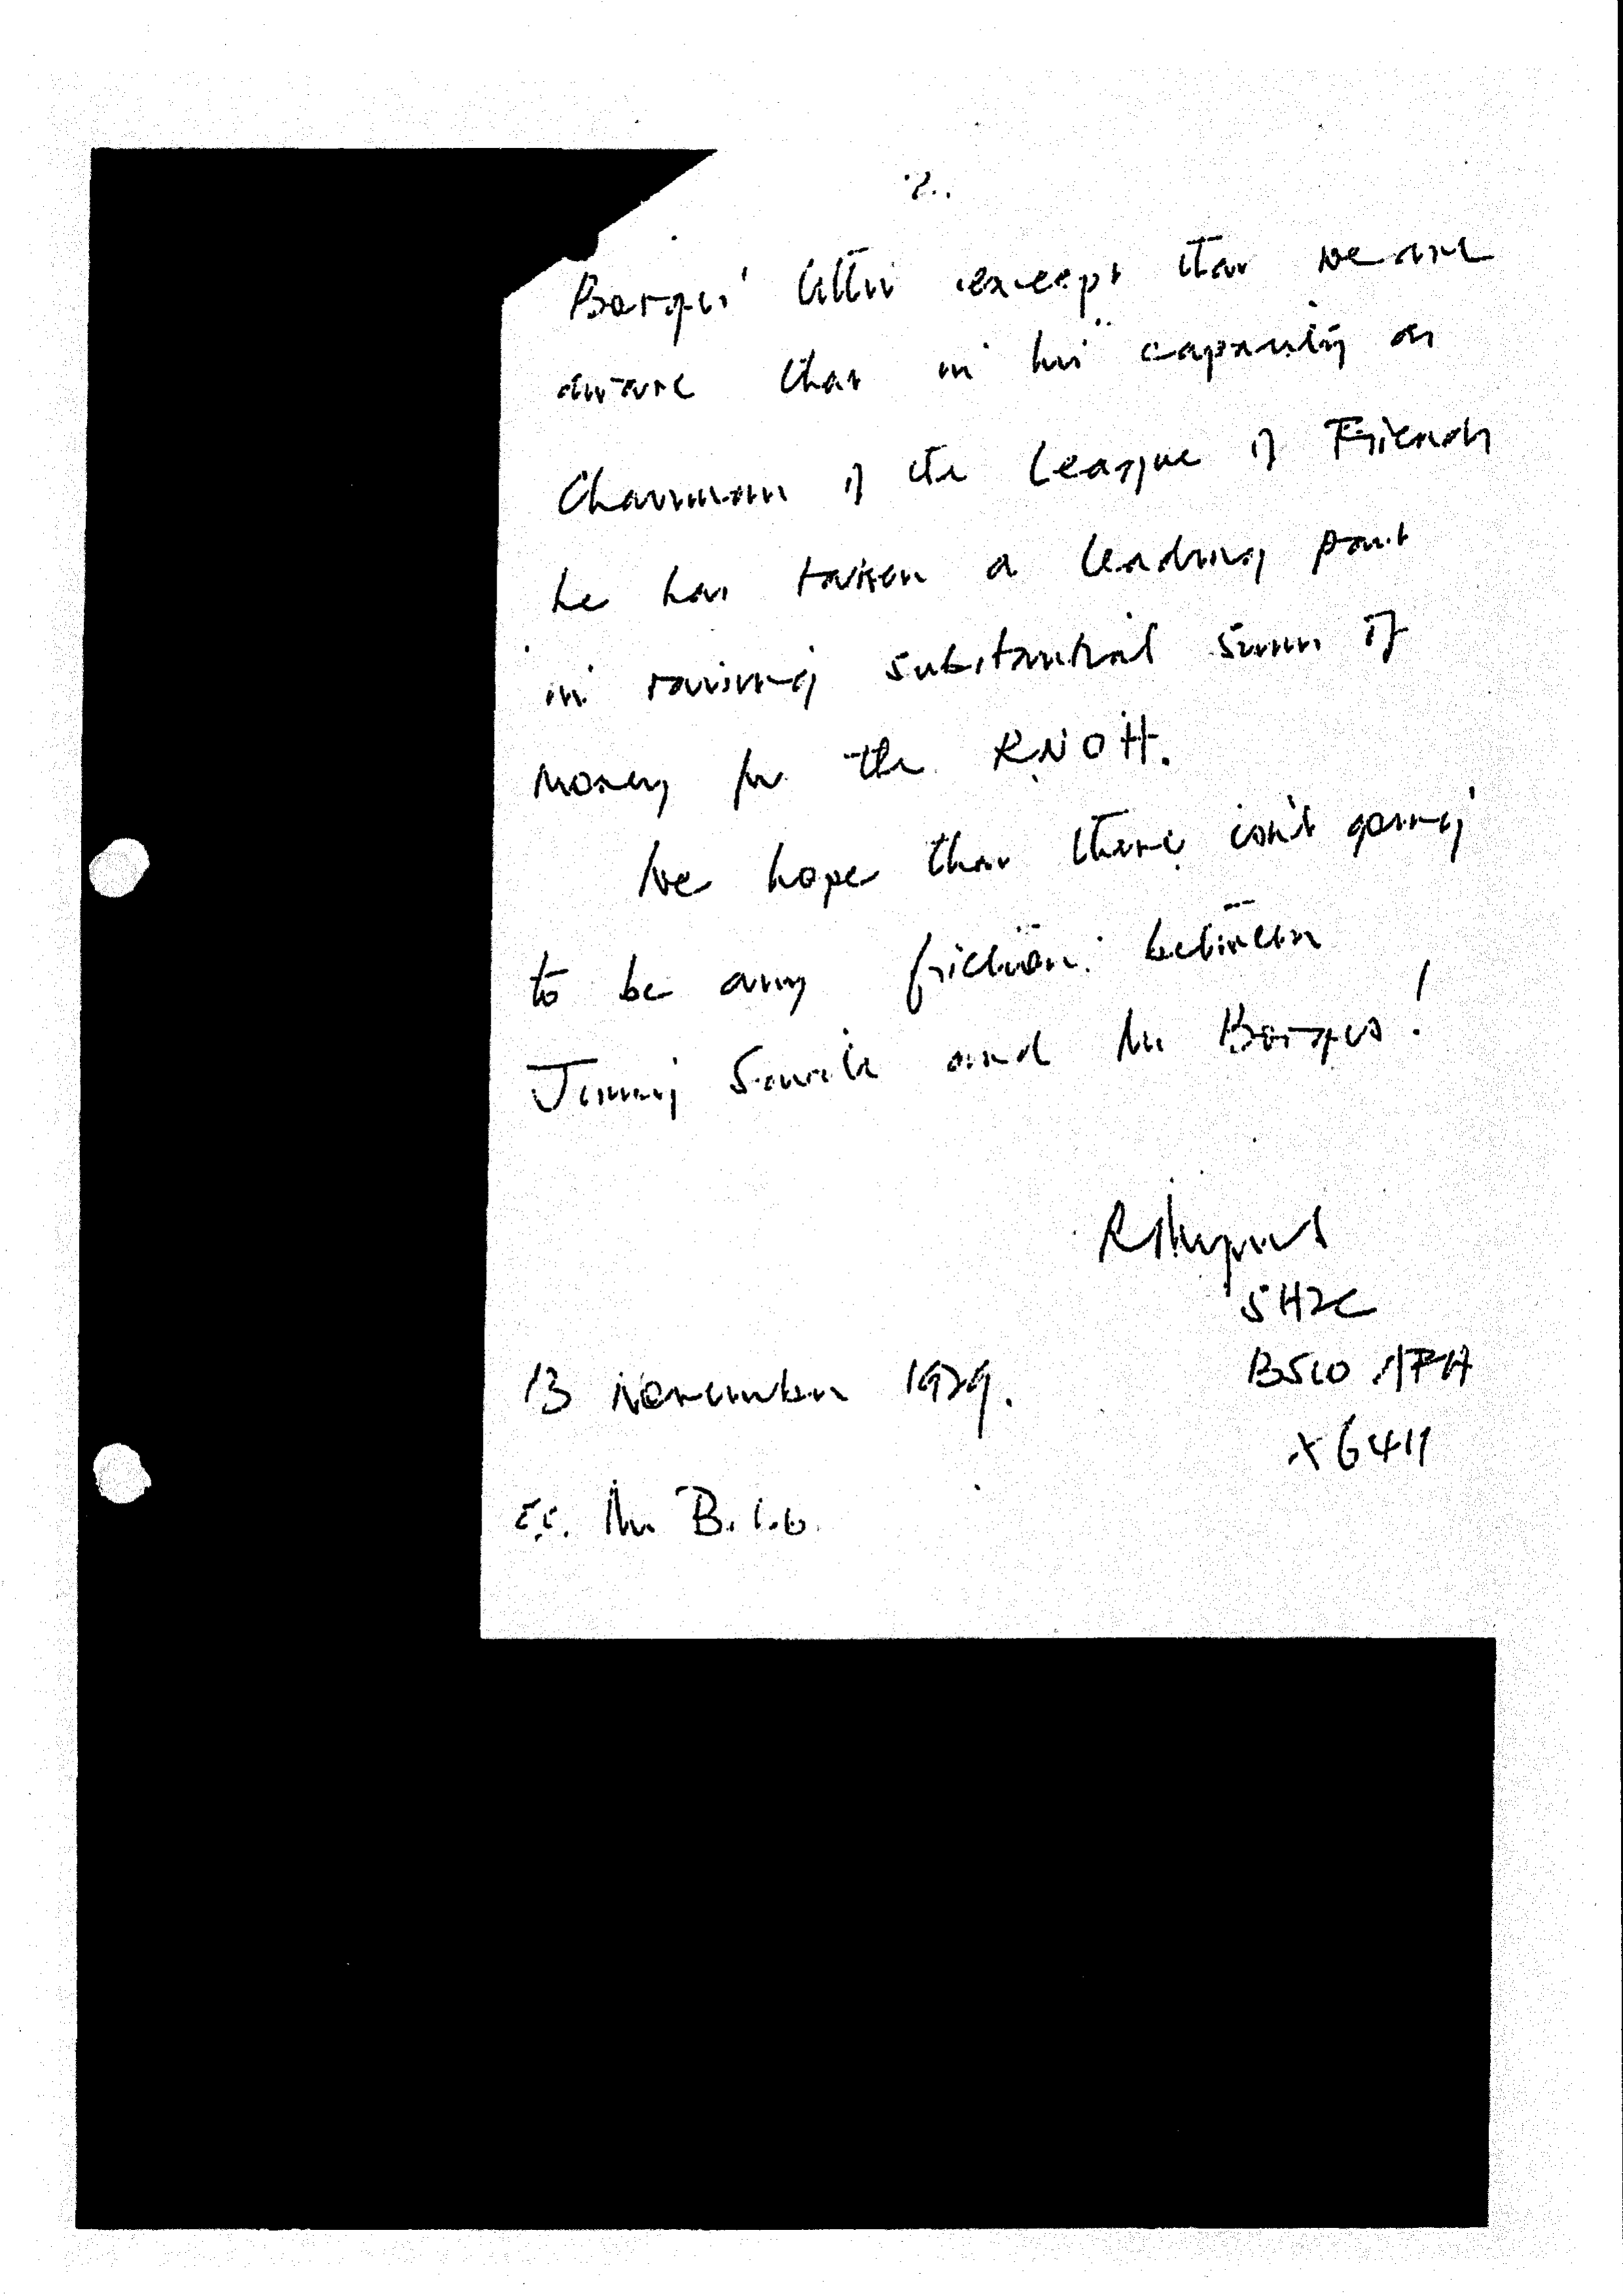 2.
Borges' letter except that we are
aware that in his capacity as
Chairman of the League of Friends
he has taken a leading part
in raising substantial sums of
money for the RNOH.
We hope that there isn't going
to be any friction between
Jimmy Savile and Mr Borges!
SH2C
B510 AFH
x6411
13 November 1979.
c.c. Mr B.